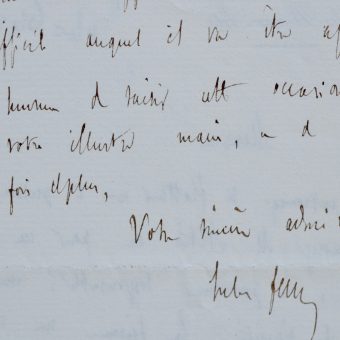 difficile auquel il va être
heureux de saisir cette occasion
votre illustre main, et de
fois de plus,
Votre sincère admi
Jules Ferry